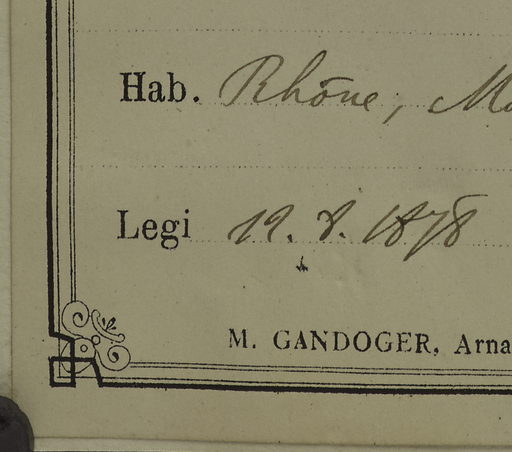 Hab. Rhône, M
Legi 19. 8. 1878
M. GANDOGER, Arna